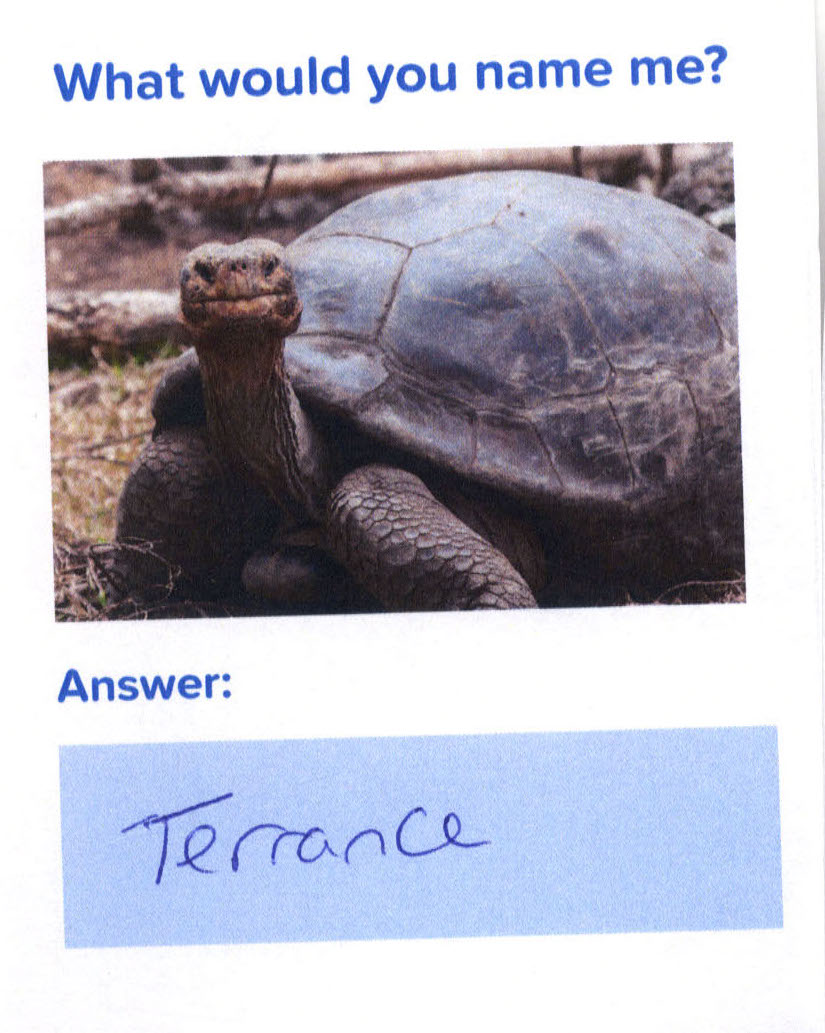 What would you name me?
Answer:
Terrance